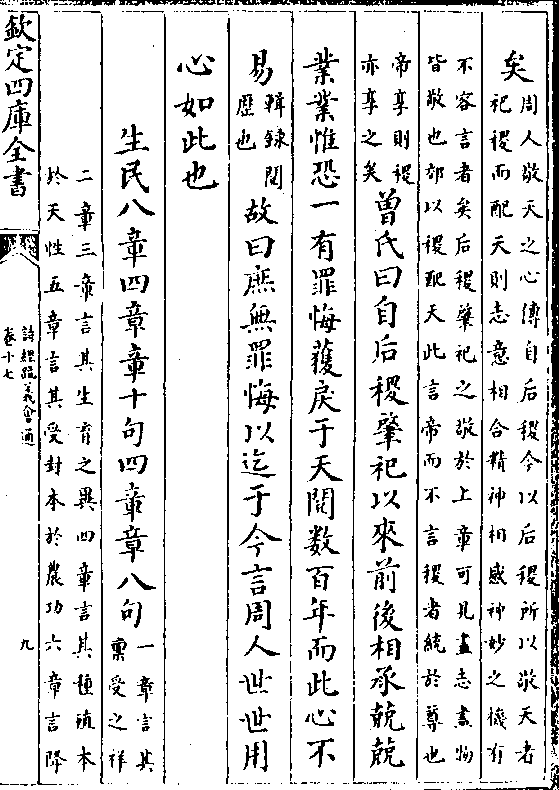 矣周人敬天之心傳自后稷今以后稷所以敬天者
祀稷而配天則志意相合精神相感神妙之機有
不容言者矣后稷肇祀之敬於上章可見盡志盡物
皆敬也郊以稷配天此言帝而不言稷者統於尊也
帝享則稷
亦享之矣曽氏曰自后稷肇祀以來前後相承兢兢
業業惟恐一有罪悔獲戾于天閲數百年而此心不
易輯録閲
歴也故曰庶無罪悔以迄于今言周人世世用
心如此也
生民八章四章章十句四章章八句一章言其
禀受之祥
二章三章言其生育之異四章言其種殖本
於天性五章言其受封本於農功六章言降
欽定四庫全書
詩經疏義會通
卷十七
九